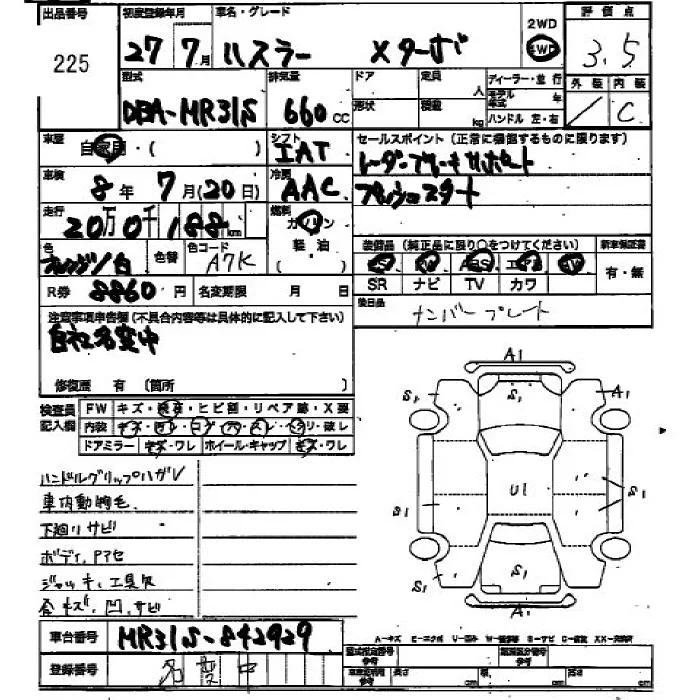 出品番号 初度登録年月 車名・グレード 2WD 評価点
225 27年7月 ハスラー Xターボ 4WD 3.5
型式 排気量 ドア 定員 人 ディーラー・並行
DBA-MR31S 660cc 形状 積載 kg モデル年式 年
ハンドル 左・右 外装 内装 / C
車歴 自家用・( ) シフト IAT
セールスポイント(正常に機能するものに限ります)
レーダーブレーキサポート
プッシュスタート
車検 8年7月(20日) 冷房 AAC
走行 20万0千188km 燃料 ガソリン 軽・油 ( )
色 オレンジ/白 色替 色コード A7K
装備品(純正品に限り○をつけてください) 新車保証書
PS PW ABS エアB AW 有・無
SR ナビ TV カワ
R券 8860円 名変期限 月 日
後日品 ナンバープレート
注意事項申告欄(不具合内容等は具体的に記入して下さい)
自社名変中
修復歴 有(箇所
検査員記入欄 FW キズ・飛石・ヒビ割・リペア跡・X要
内装 キズ・・・・・・破レ
ドアミラー キズ・ワレ ホイール・キャップ キズ・ワレ
ハンドルグリップハガレ
車内動物毛
下廻りサビ
ボディ、Pアセ
ジャッキ、工具欠
キズ、凹、サビ
A1
S1 S1 A1
S1 U1 S1
S1 S1
A1
車台番号 MR31S-842929
A-キズ U-凹み S-サビ
登録番号 名変中
型式指定番号 参考 類別区分番号 参考
参考 長さ cm 幅 cm 高さ cm